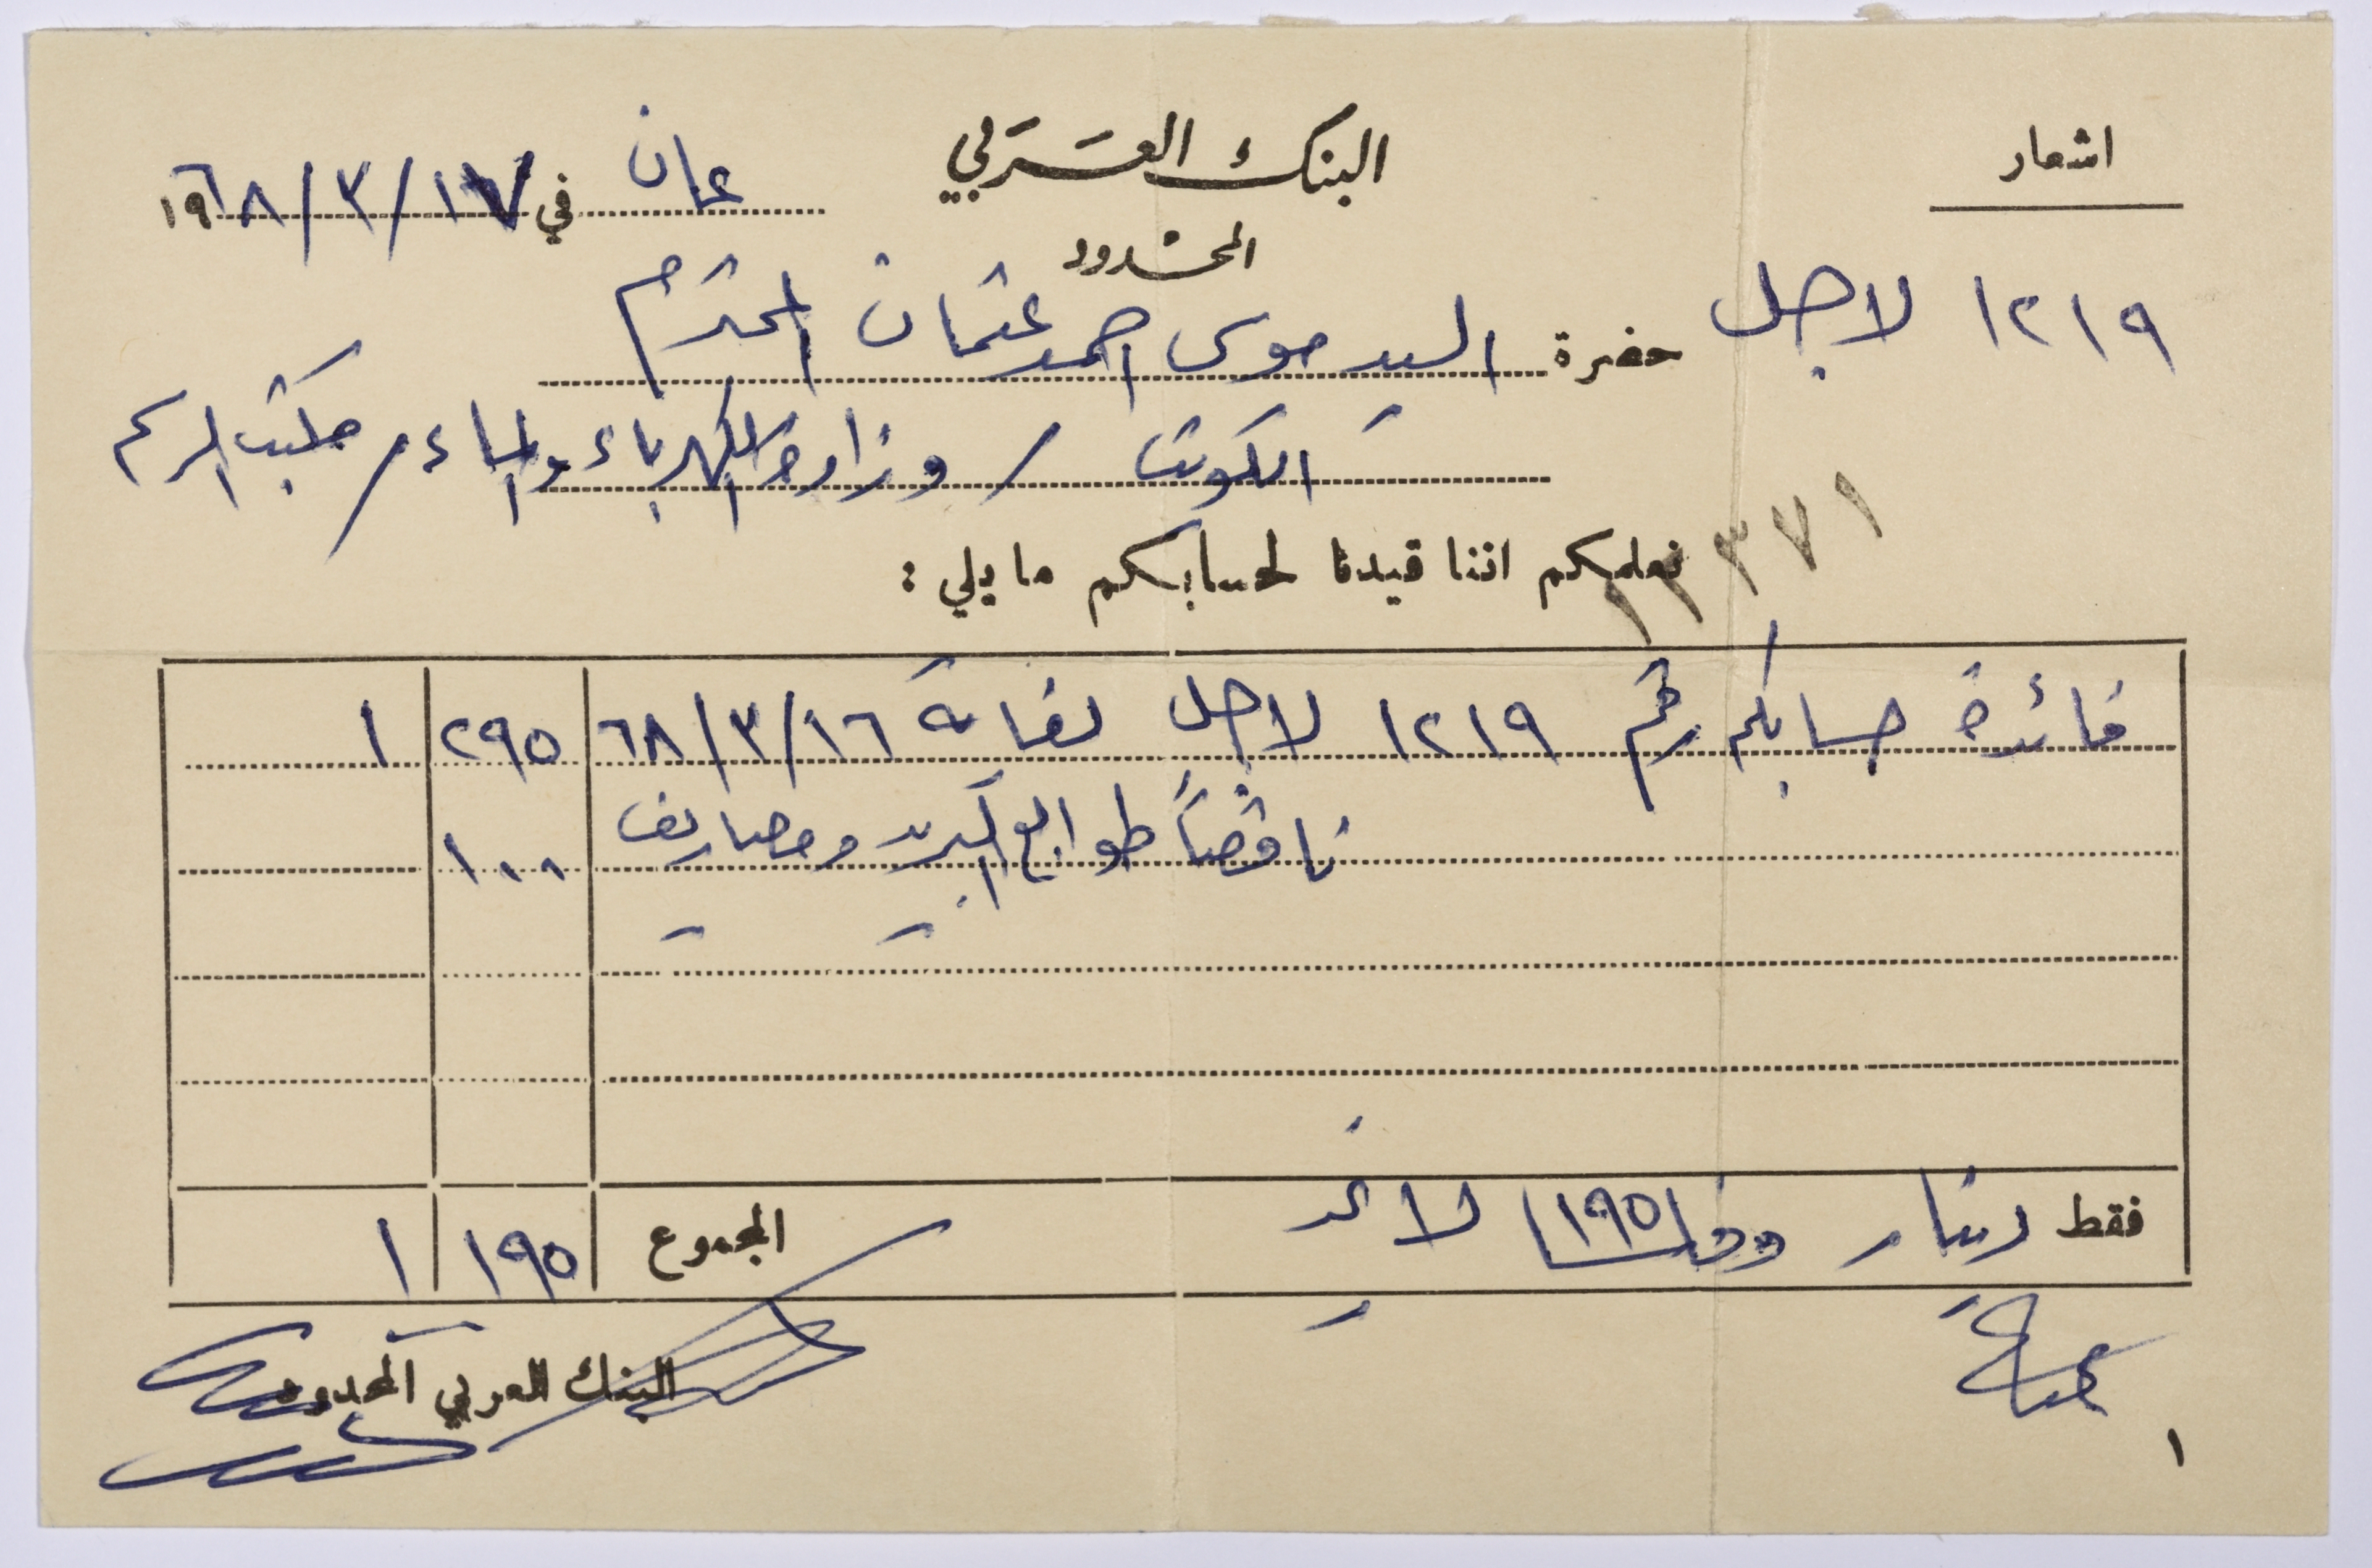 اشعار
البنك العربي
المحدود
عمان في ١٩٦٨/٣/١٧
١٢١٩ لاجل
حضرة السيد موسى احمد عثمان المحترم
الكويت / وزارة الكهرباء والماء / مكتب
٣٧١
نعلمكم اننا قيدنا لحسابكم ما يلي :
فائدة حسابكم رقم ١٢١٩ لاجل لغاية ٦٨/٣/١٦ ٢٩٥ ١
ناقصاً طوابع البريد ومصاريف ١٠٠
فقط دينار و ١٩٥ لا غير المجموع ١٩٥ ١
البنك العربي المحدود
١